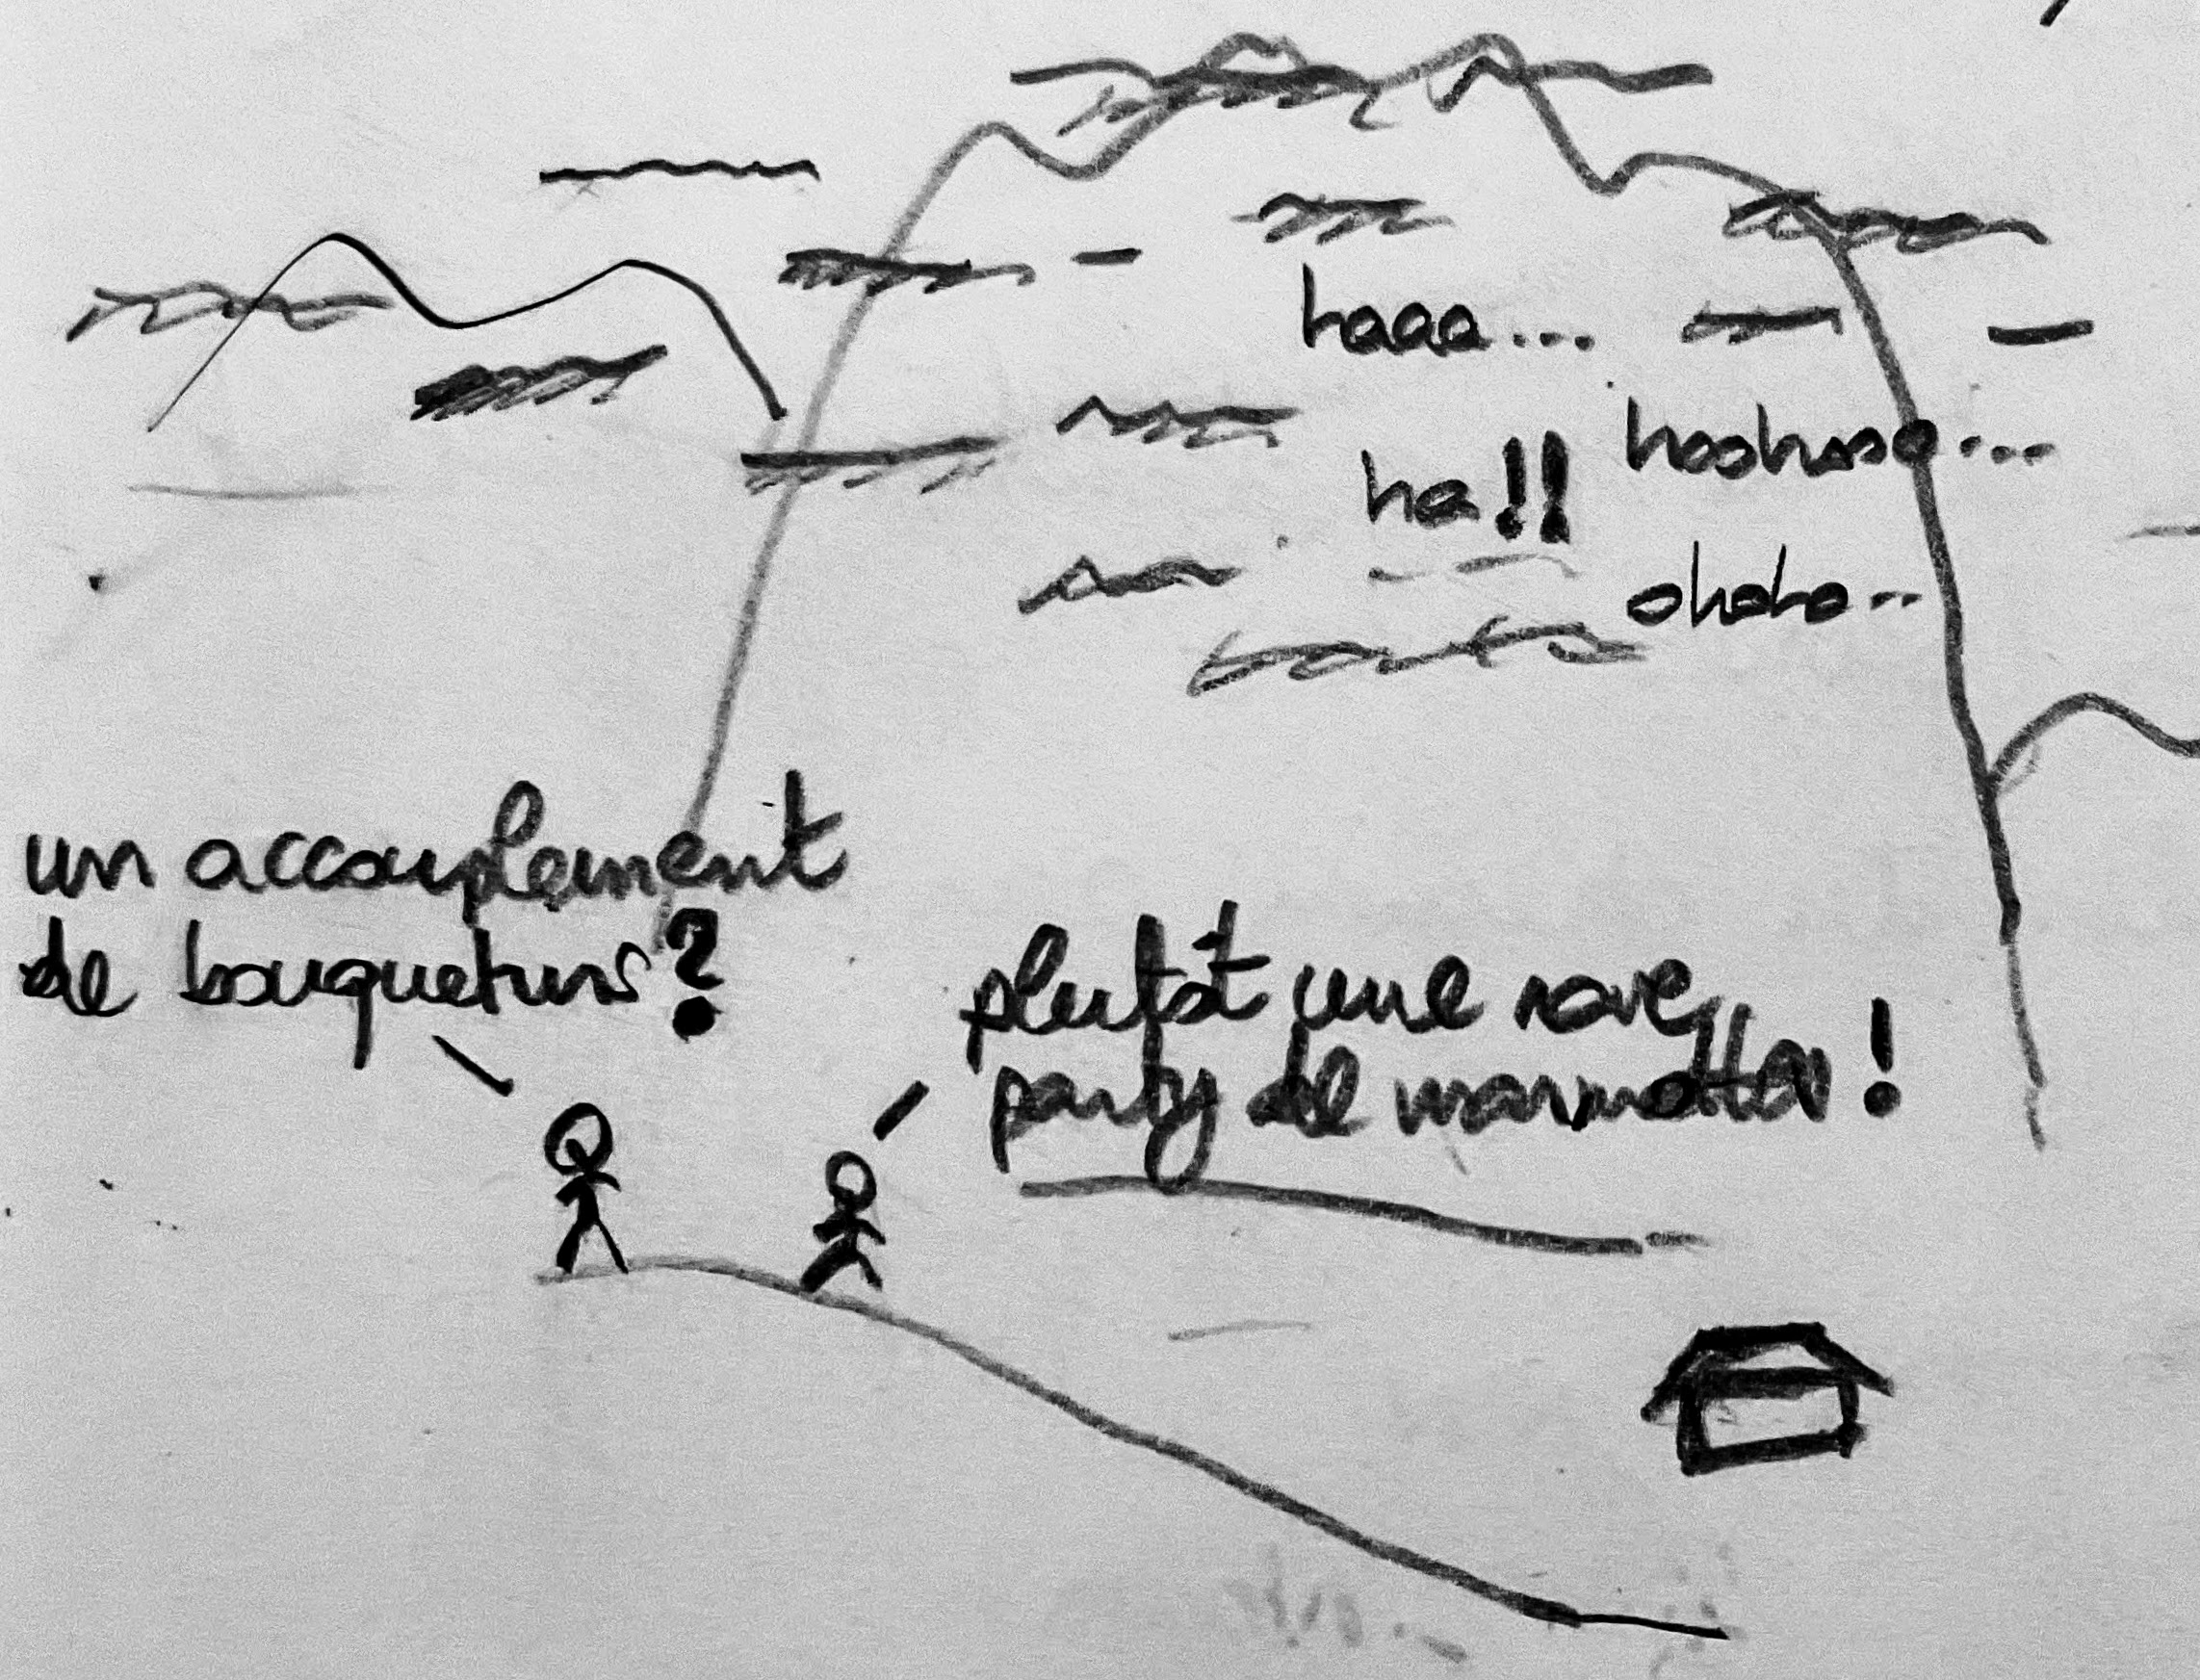 haaa...
hoohooo...
ha!!
ohoho..
un accouplement
de bouquetins?
plutôt une rave
party de marmottes!